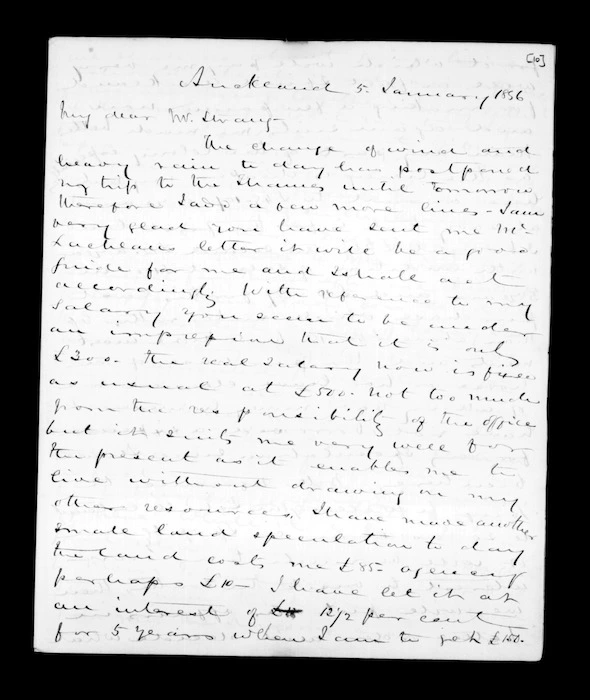 [10]
Auckland 5 January 1856
My dear Mr. Strang
The change of wind and
heavy rain to day has postponed
my trip to the Thames until Tomorrow
therefore I add a few more lines - I am
very glad you have sent me Mr
Lachlans letter it will be a good
guide for me and I shall act
accordingly. With reference to my
Salary you seem to be under
an impression that it is only
£300. the real salary now is fixed
as usual at £500. not too much
from the responsibility of the office
but it suits me very well for
the present as it enables me to
live without drawing on my
other resources. I have made another
small land speculation to day
the land costs me £85 agency
perhaps £10 - I have let it at
an interest of 12½ per cent
for 5 years when I am to get £150.